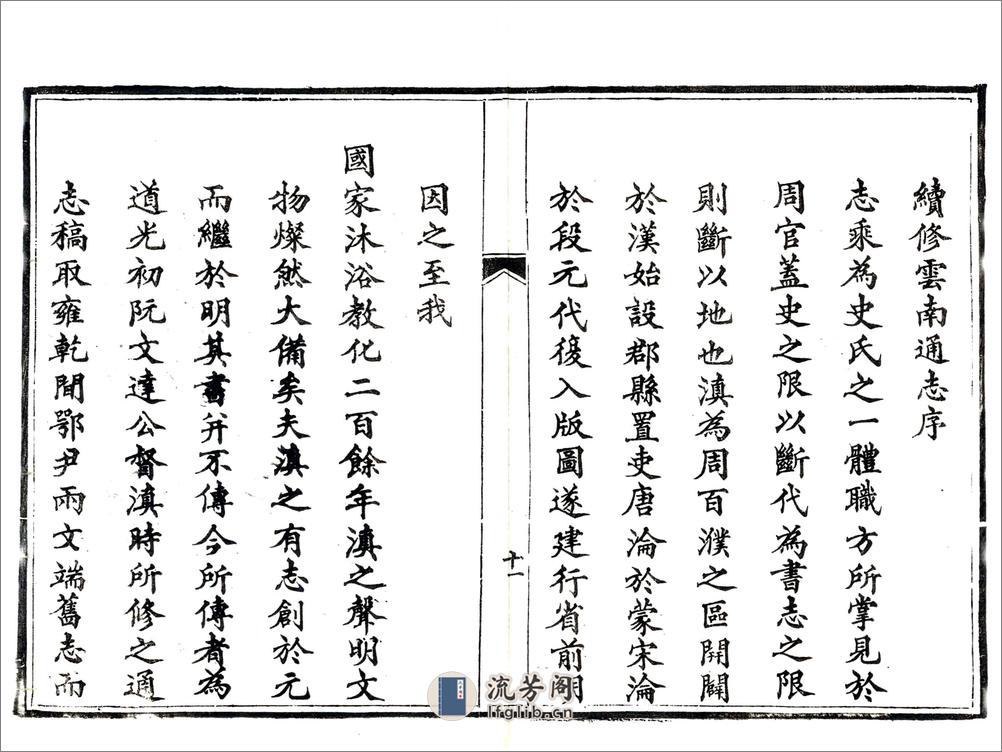 續修雲南通志序
志乘為史氏之一體職方所掌見於
周官蓋史之限以斷代為書志之限
則斷以地也滇為周百濮之區開闢
於漢始設郡縣置吏唐淪於蒙宋淪
於段元代復入版圖遂建行省前明
十一
因之至我
國家沐浴教化二百餘年滇之聲明文
物燦然大備矣夫滇之有志創於元
而繼於明其書并不傳今所傳者為
道光初阮文達公督滇時所修之通
志稿取雍乾間鄂尹兩文端舊志而
流芳阁
lfglib.cn